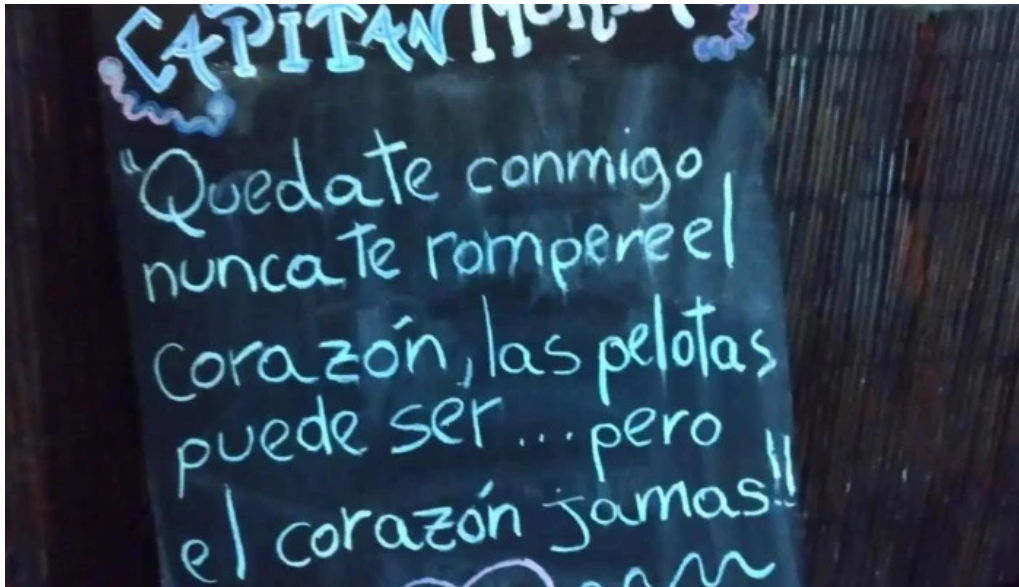 CAPITAN
"Quedate conmigo
nunca te rompere el
corazón, las pelotas
puede ser... pero
el corazón jamas!!